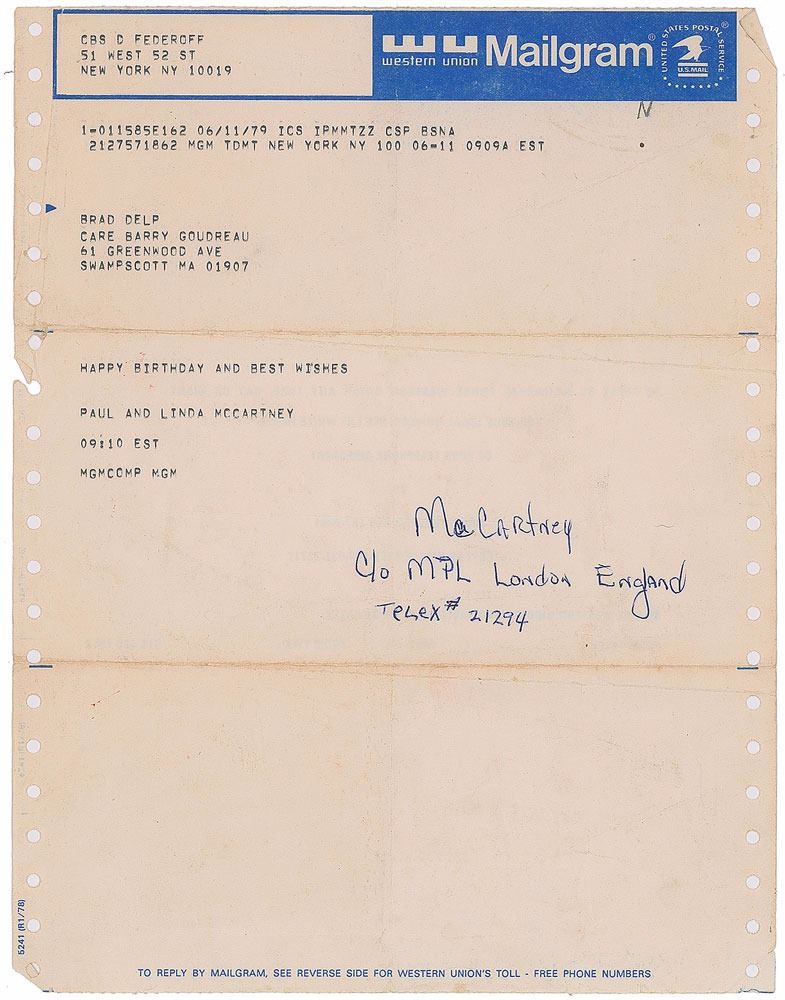 CBS D FEDEROFF
51 WEST 52 ST
NEW YORK NY 10019
western union Mailgram®
UNITED STATES POSTAL SERVICE
U.S.MAIL
®
N
1-011585E162 06/11/79 ICS IPMMTZZ CSP BSNA
2127571862 MGM TDMT NEW YORK NY 100 06-11 0909A EST
BRAD DELP
CARE BARRY GOUDREAU
61 GREENWOOD AVE
SWAMPSCOTT MA 01907
HAPPY BIRTHDAY AND BEST WISHES
PAUL AND LINDA MCCARTNEY
09:10 EST
MGMCOMP MGM
McCartney
C/o MPL London England
Telex # 21294
5241 (R1/78)
TO REPLY BY MAILGRAM, SEE REVERSE SIDE FOR WESTERN UNION'S TOLL - FREE PHONE NUMBERS